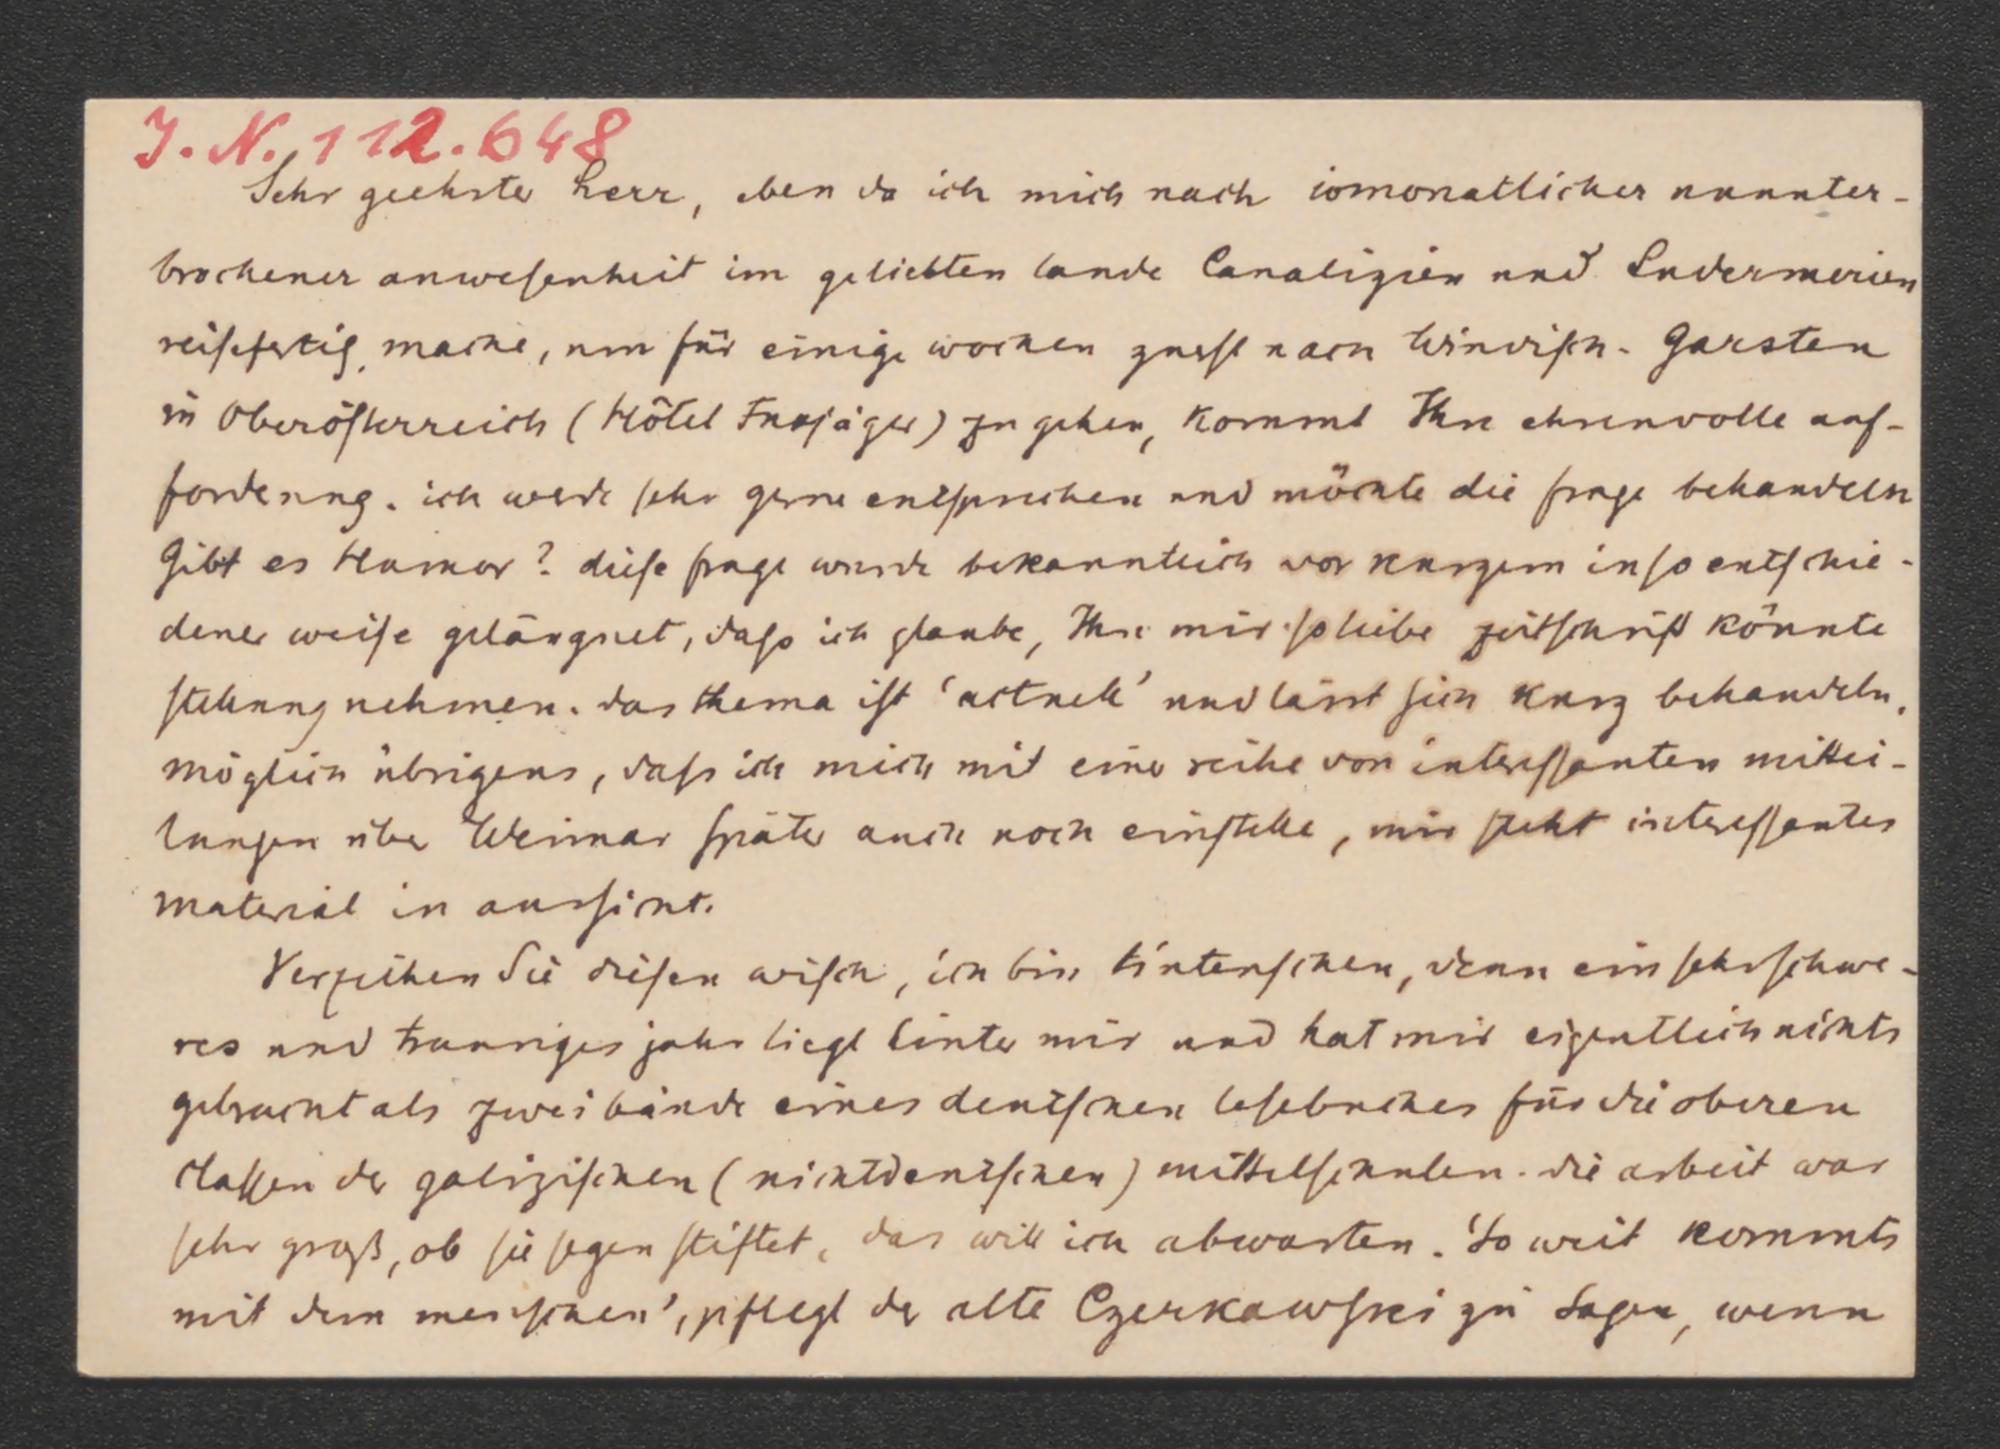 J. N. 112.648
Sehr geehrter herr, eben da ich mich nach 10monatlicher ununter-
brochener anwesenheit im geliebten lande Canalizien und Ludermerien
reisefertig mache, um für einige wochen zuerst nach Windisch-Garsten
in Oberösterreich (Hôtel Fuxjäger) zu gehen, kommt Ihre ehrenvolle auf-
forderung. ich werde sehr gerne entsprechen und möchte die frage behandeln
Gibt es Humor? diese frage wurde bekanntlich vor kurzem in so entschie-
dener weise geläugnet, dass ich glaube, Ihre mir so liebe zeitschrift könnte
stellung nehmen. das thema ist 'actuell' und lässt sich kurz behandeln.
möglich übrigens, dass ich mich mit einer reihe von interessanten mittei-
lungen über Weimar später auch noch einstelle, mir steht interessantes
material in aussicht.
Verzeihen Sie diesen wisch, ich bin tintenscheu, denn ein sehr schwe-
res und trauriges jahr liegt hinter mir und hat mir eigentlich nichts
gebracht als zwei bände eines deutschen lesebuches für die oberen
classen der galizischen (nichtdeutschen) mittelschulen. die arbeit war
sehr groß, ob sie segen stiftet, das will ich abwarten. 'So weit kommts
mit dem menschen', pflegt der alte Czerkawski zu sagen, wenn